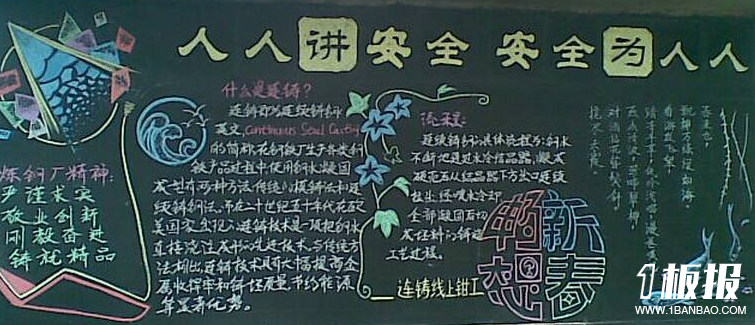 人人讲安全 安全为人人
炼钢厂精神:
严谨求实
敬业创新
刚毅奋进
铸就精品
什么是连铸?
连铸即为连续铸钢
英文,Continuous Steel Casting
的简称.在钢铁厂生产各类钢
铁产品过程中,使用钢水凝固
成型有两种方法:传统的模铸法和连
续铸钢法。而在二十世纪五十年代在欧
美国家出现的连铸技术是一项把钢水
直接浇注成形的先进技术。与传统方
法相比,连铸技术具有大幅提高金
属收得率和铸坯质量,节约能源
等显著优势。
流程:
连续铸钢的具体流程为:钢水
不断地通过水冷结晶器,凝成
硬壳后从结晶器下方出口连续
拉出,经喷水冷却
全部凝固后切
成坯料的铸造
工艺过程。
连铸线上钳工
新春
畅想
1板报
WWW.1BANBAO.COM